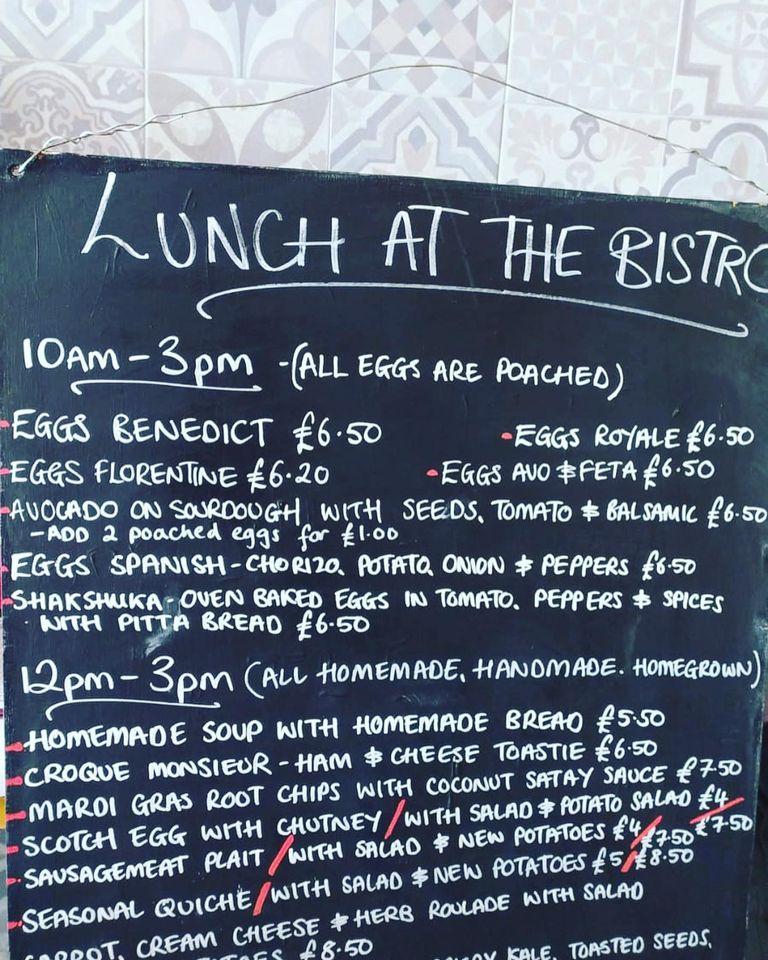 LUNCH AT THE BISTRO
10AM - 3PM - (ALL EGGS ARE POACHED)
- EGGS BENEDICT £6.50 - EGGS ROYALE £6.50
- EGGS FLORENTINE £6.20 - EGGS AVO & FETA £6.50
- AVOCADO ON SOURDOUGH WITH SEEDS, TOMATO & BALSAMIC £6.50
- ADD 2 poached eggs for £1.00
- EGGS SPANISH - CHORIZO, POTATO, ONION & PEPPERS £6.50
- SHAKSHUKA - OVEN BAKED EGGS IN TOMATO, PEPPERS & SPICES
WITH PITTA BREAD £6.50
12pm - 3pm (ALL HOMEMADE, HANDMADE. HOMEGROWN)
- HOMEMADE SOUP WITH HOMEMADE BREAD £5.50
- CROQUE MONSIEUR - HAM & CHEESE TOASTIE £6.50
- MARDI GRAS ROOT CHIPS WITH COCONUT SATAY SAUCE £7.50
- SCOTCH EGG WITH CHUTNEY / WITH SALAD & POTATO SALAD £4 / £7.50
- SAUSAGEMEAT PLAIT / WITH SALAD & NEW POTATOES £4 / £7.50
- SEASONAL QUICHE / WITH SALAD & NEW POTATOES £5 / £8.50
CARROT, CREAM CHEESE & HERB ROULADE WITH SALAD
£8.50
KALE, TOASTED SEEDS,